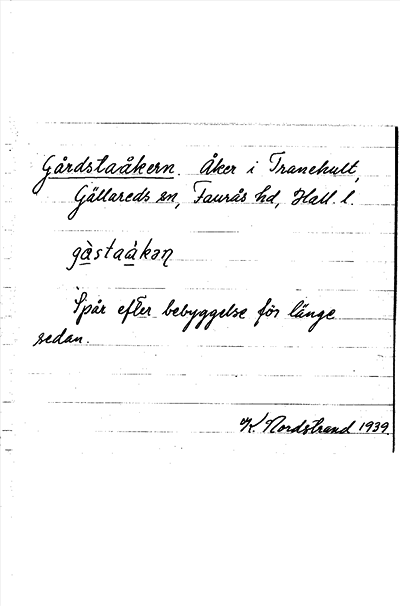 Gårdstaåkern. Åker i Tranehult,
Gällareds sn, Faurås hd, Hall. l.
gàstaàkəɳ
Spår efter bebyggelse för länge
sedan.
K. Nordstrand 1939.